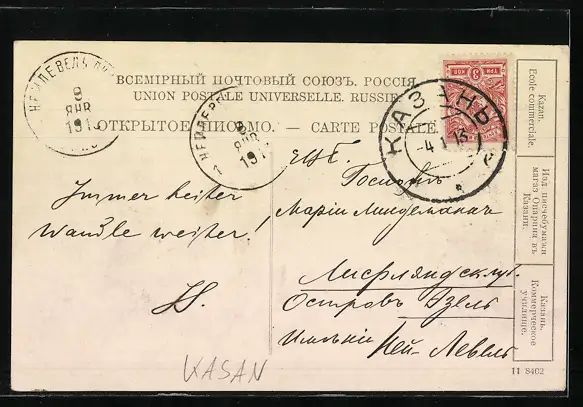 ВСЕМІРНЫЙ ПОЧТОВЫЙ СОЮЗЪ. РОССІЯ.
UNION POSTALE UNIVERSELLE. RUSSIE.
ОТКРЫТОЕ ПИСЬМО. — CARTE POSTALE.
8
ЯНР
191
8
ЯНР
191
КАЗАНЬ
-4.1.13
3
Immer heiter
Wandle weiter!
Маріи Линдеманъ
Лифляндск. губ.
Островъ Эзель
Ней-Левель
KASAN
Kazan.
Ecole commerciale.
Изд. писчебумажн.
магаз. Опарина въ
Казани.
Казань.
Коммерческое
училище.
11 8402